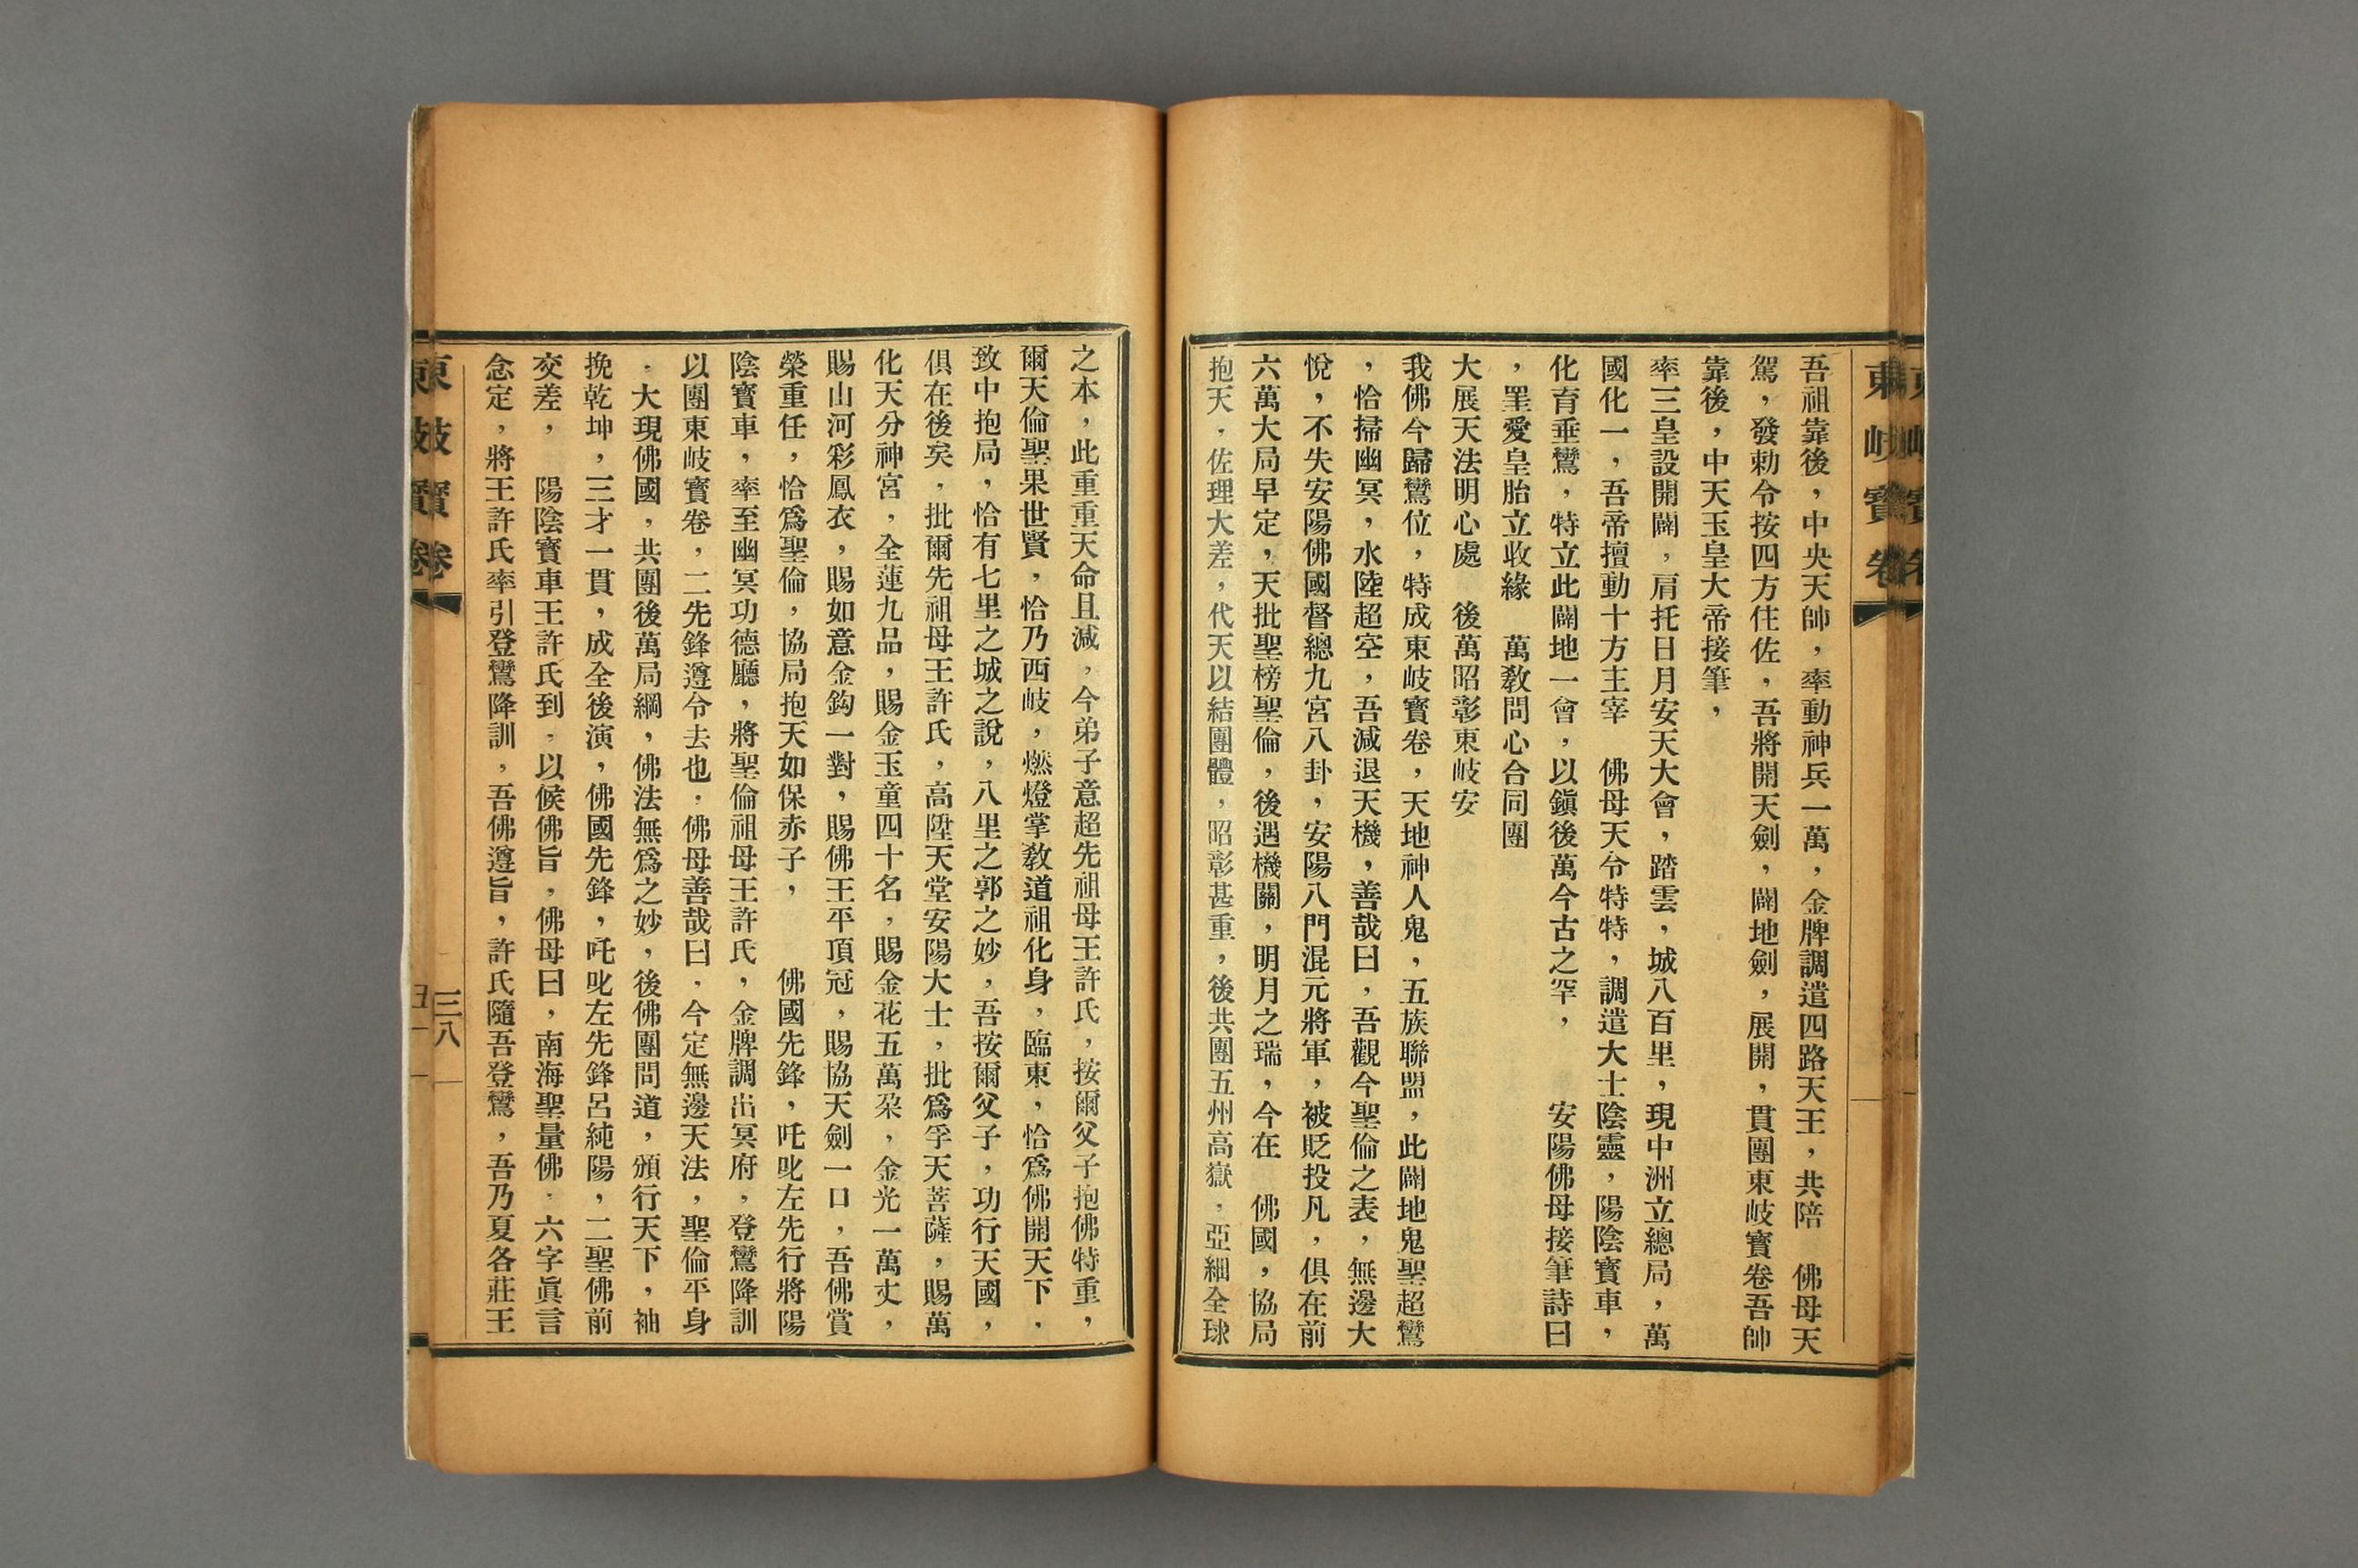 東岐寶卷
吾祖靠後，中央天帥，率動神兵一萬，金牌調遣四路天王，共陪　佛母天
駕，發勅令按四方住佐，吾將開天劍，闢地劍，展開，貫團東岐寶卷吾帥
靠後，中天玉皇大帝接筆，
率三皇設開闢，肩托日月安天大會，踏雲，城八百里，現中洲立總局，萬
國化一，吾帝擅動十方主宰　佛母天令特特，調遣大士陰靈，陽陰寶車，
化育垂鸞，特立此闢地一會，以鎮後萬今古之罕，　　安陽佛母接筆詩曰
，罣愛皇胎立收緣　萬教問心合同團
大展天法明心處　後萬昭彰東岐安
我佛今歸鸞位，特成東岐寶卷，天地神人鬼，五族聯盟，此闢地鬼聖超鸞
，恰掃幽冥，水陸超空，吾減退天機，善哉曰，吾觀今聖倫之表，無邊大
悅，不失安陽佛國督總九宮八卦，安陽八門混元將軍，被貶投凡，俱在前
六萬大局早定，天批聖榜聖倫，後遇機關，明月之瑞，今在　佛國，協局
抱天，佐理大差，代天以結團體，昭彰甚重，後共團五州高嶽，亞細全球
之本，此重重天命且減，今弟子意超先祖母王許氏，按爾父子抱佛特重，
爾天倫聖果世賢，恰乃西岐，燃燈掌教道祖化身，臨東，恰爲佛開天下，
致中抱局，恰有七里之城之說，八里之郭之妙，吾按爾父子，功行天國，
俱在後矣，批爾先祖母王許氏，高陞天堂安陽大士，批爲孚天菩薩，賜萬
化天分神宮，全蓮九品，賜金玉童四十名，賜金花五萬朶，金光一萬丈，
賜山河彩鳳衣，賜如意金鈎一對，賜佛王平頂冠，賜協天劍一口，吾佛賞
榮重任，恰爲聖倫，協局抱天如保赤子，　　佛國先鋒，吒叱左先行將陽
陰寶車，率至幽冥功德廳，將聖倫祖母王許氏，金牌調出冥府，登鸞降訓
以團東岐寶卷，二先鋒遵令去也，佛母善哉曰，今定無邊天法，聖倫平身
，大現佛國，共團後萬局綱，佛法無爲之妙，後佛團問道，頒行天下，袖
挽乾坤，三才一貫，成全後演，佛國先鋒，吒叱左先鋒呂純陽，二聖佛前
交差，　陽陰寶車王許氏到，以候佛旨，佛母曰，南海聖量佛，六字眞言
念定，將王許氏率引登鸞降訓，吾佛遵旨，許氏隨吾登鸞，吾乃夏各莊王
東岐寶卷
三八